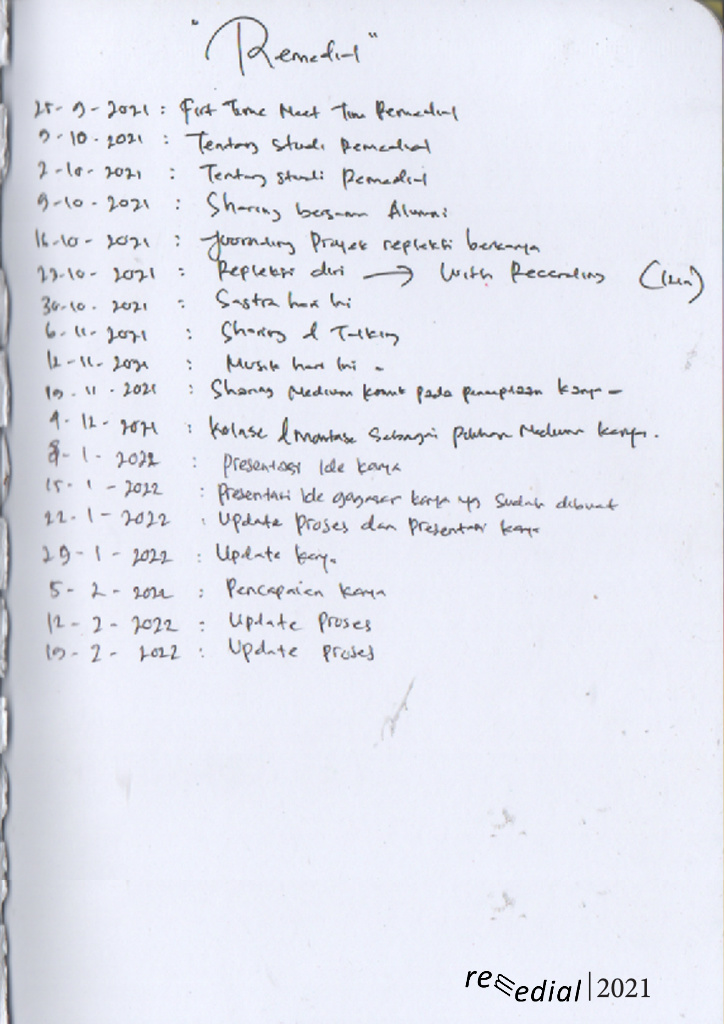 "Remedial"
25-9-2021 : First Time Meet Tim Remedial
9-10-2021 : Tentang studi Remedial
2-10-2021 : Tentang studi Remedial
9-10-2021 : Sharing bersama Alumni
16-10-2021 : Journaling Projek repleksi berkarya
23-10-2021 : Repleksi diri → With Recording
30-10-2021 : Sastra hari Ini
6-11-2021 : Sharing & Talking
12-11-2021 : Musik hari Ini -
19-11-2021 : Sharing Medium pada penciptaan karya -
4-12-2021 : Kolase & Montase Sebagai Pilihan Medium karya.
8-1-2022 : Presentasi Ide karya
15-1-2022 : Presentasi Ide gagasan karya yg sudah dibuat
22-1-2022 : Update Proses dan Presentasi karya
29-1-2022 : Update karya
5-2-2022 : Pencapaian karya
12-2-2022 : Update Proses
19-2-2022 : Update Proses
remedial|2021